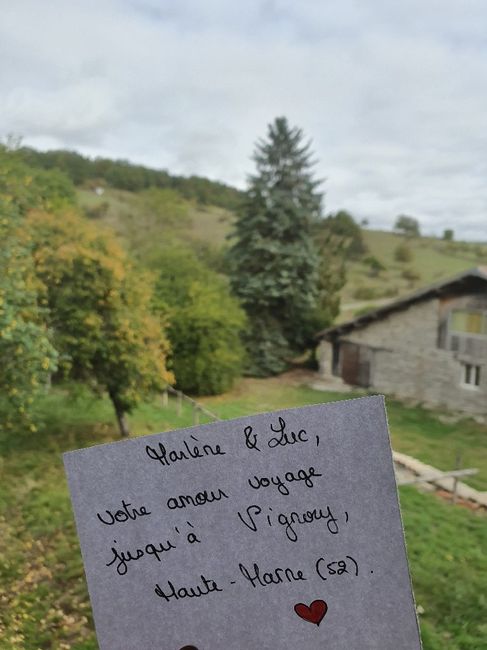 Marlène & Luc,
votre amour voyage
jusqu'à Vignory,
Haute-Marne (52).